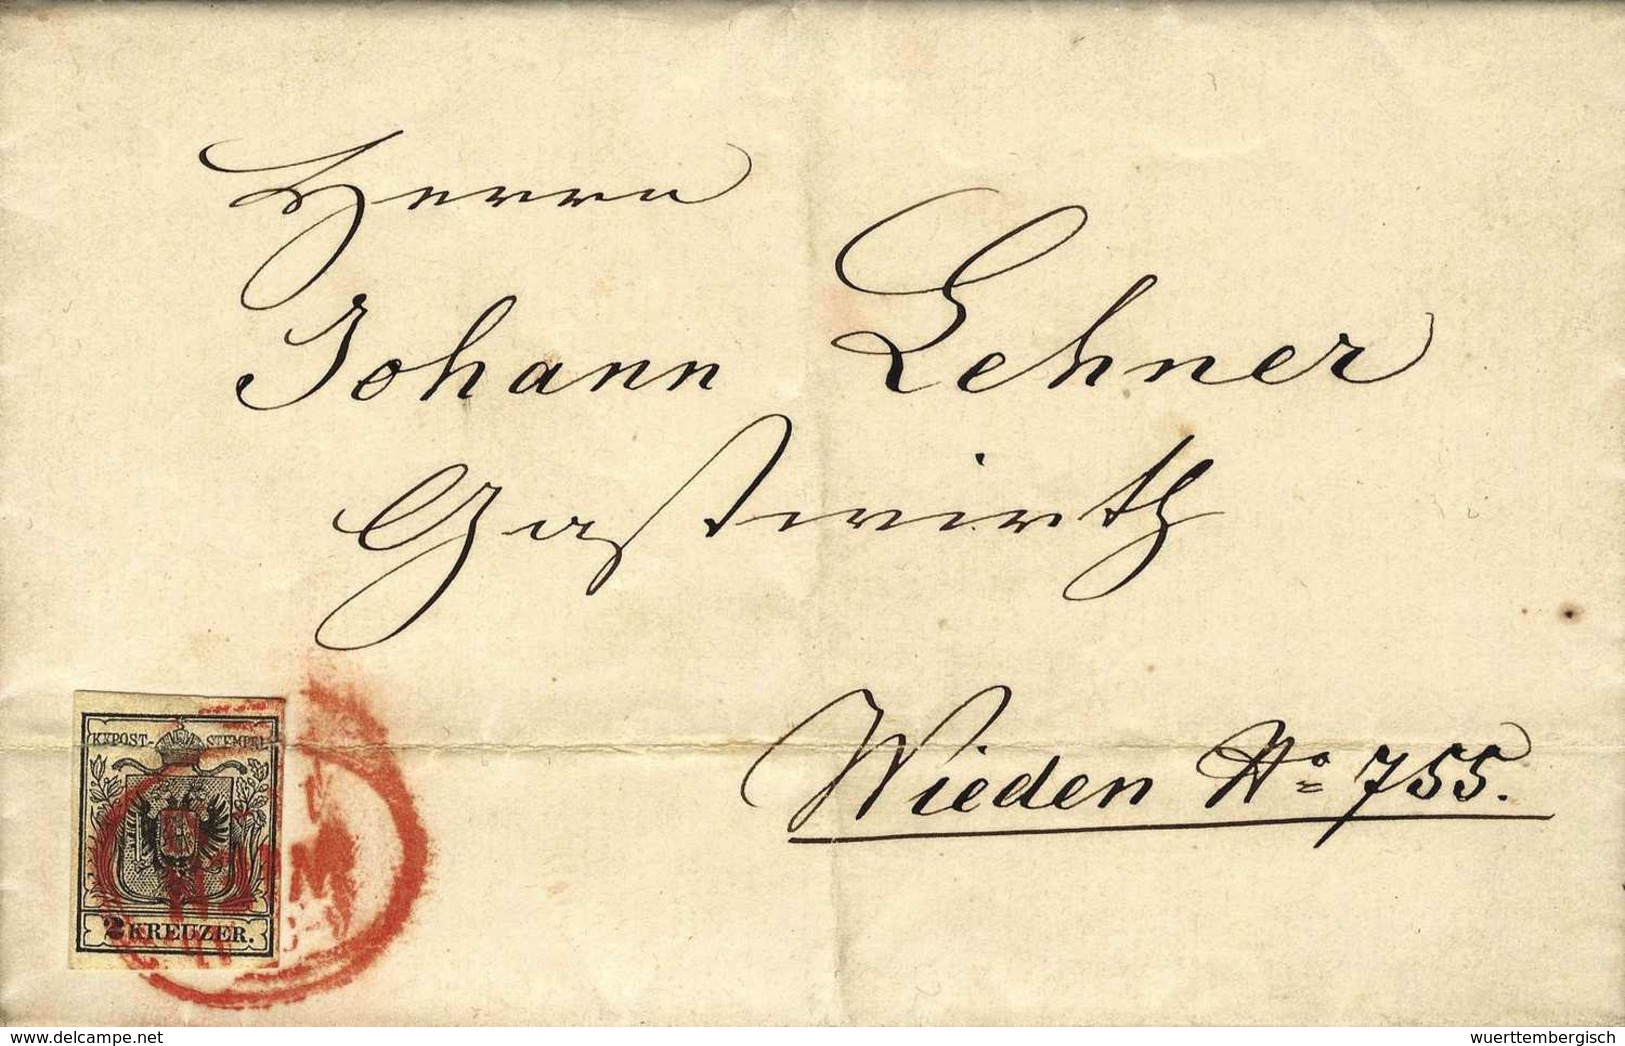 Herrn
Johann Lehner
Gastwirth
Wieden No 755.
KKPOST-STEMPEL
2 KREUZER.
www.delcampe.net
wuerttembergisch